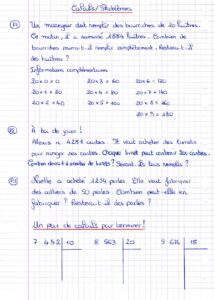 Calculs / Problèmes
P1 Un mareyeur doit remplir des bourriches de 20 huîtres.
Ce matin, il a ramassé 1884 huîtres. Combien de
bourriches pourra-t-il remplir complètement. Restera-t-il
des huîtres ?
Informations complémentaires
20 x 0 = 0 20 x 3 = 60 20 x 6 = 120
20 x 1 = 20 20 x 4 = 80 20 x 7 = 140
20 x 2 = 40 20 x 5 = 100 20 x 8 = 160
20 x 9 = 180
P2 À toi de jouer !
Alexis a 4281 cartes. Il veut acheter des livrets
pour ranger ses cartes. Chaque livret peut contenir 200 cartes.
Combien devra-t-il acheter de livrets ? Seront-ils tous remplis ?
P3 Noëlle a acheté 1254 perles. Elle veut fabriquer
des colliers de 50 perles. Combien peut-elle en
fabriquer ? Restera-t-il des perles ?
Un peu de calculs pour terminer !
7 452 10 8 563 20 9 674 15